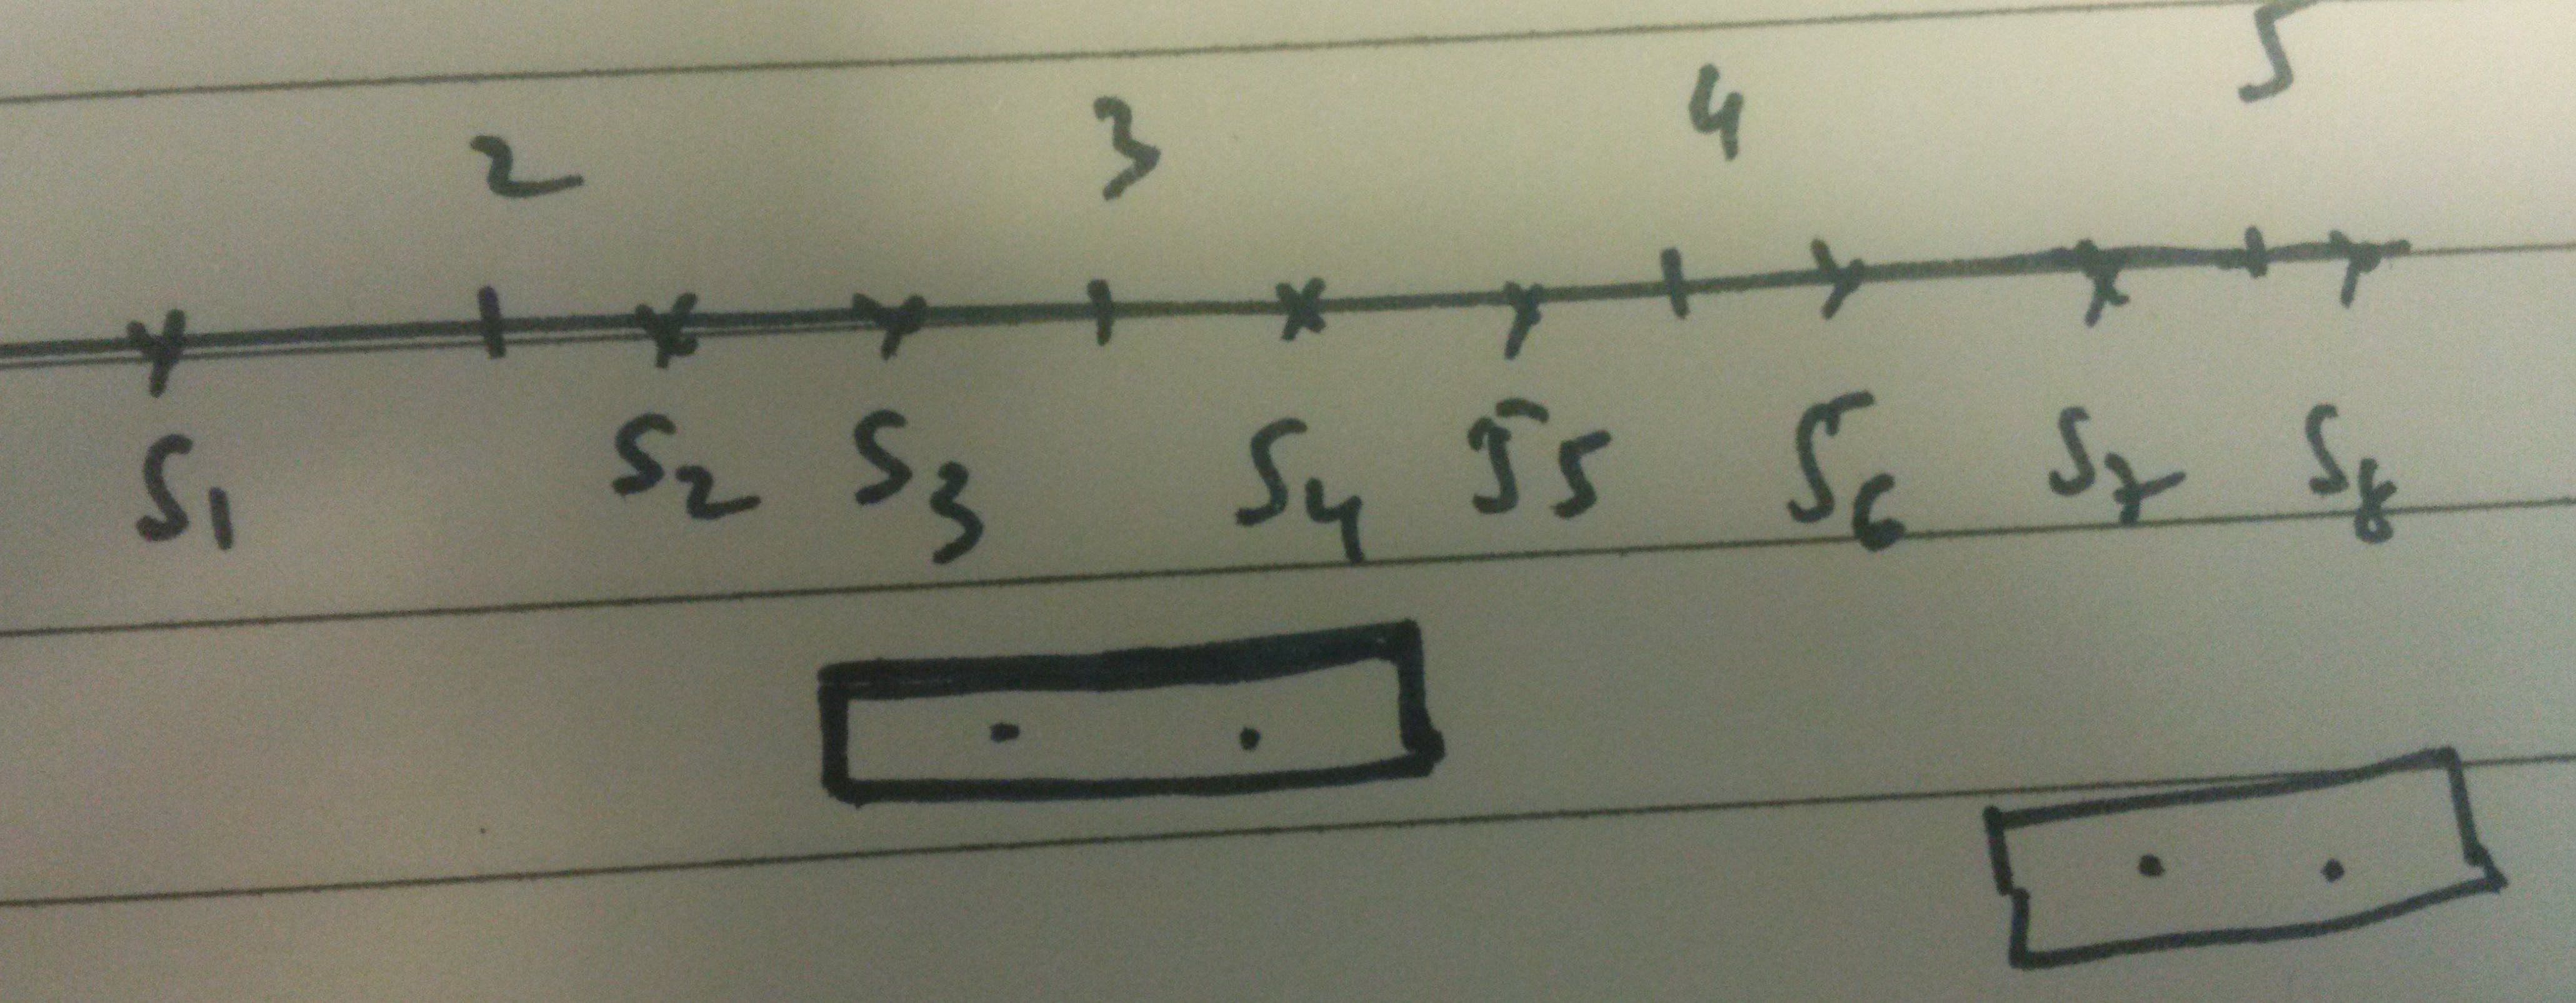 2 3 4 5
S1 S2 S3 S4 S5 S6 S7 S8